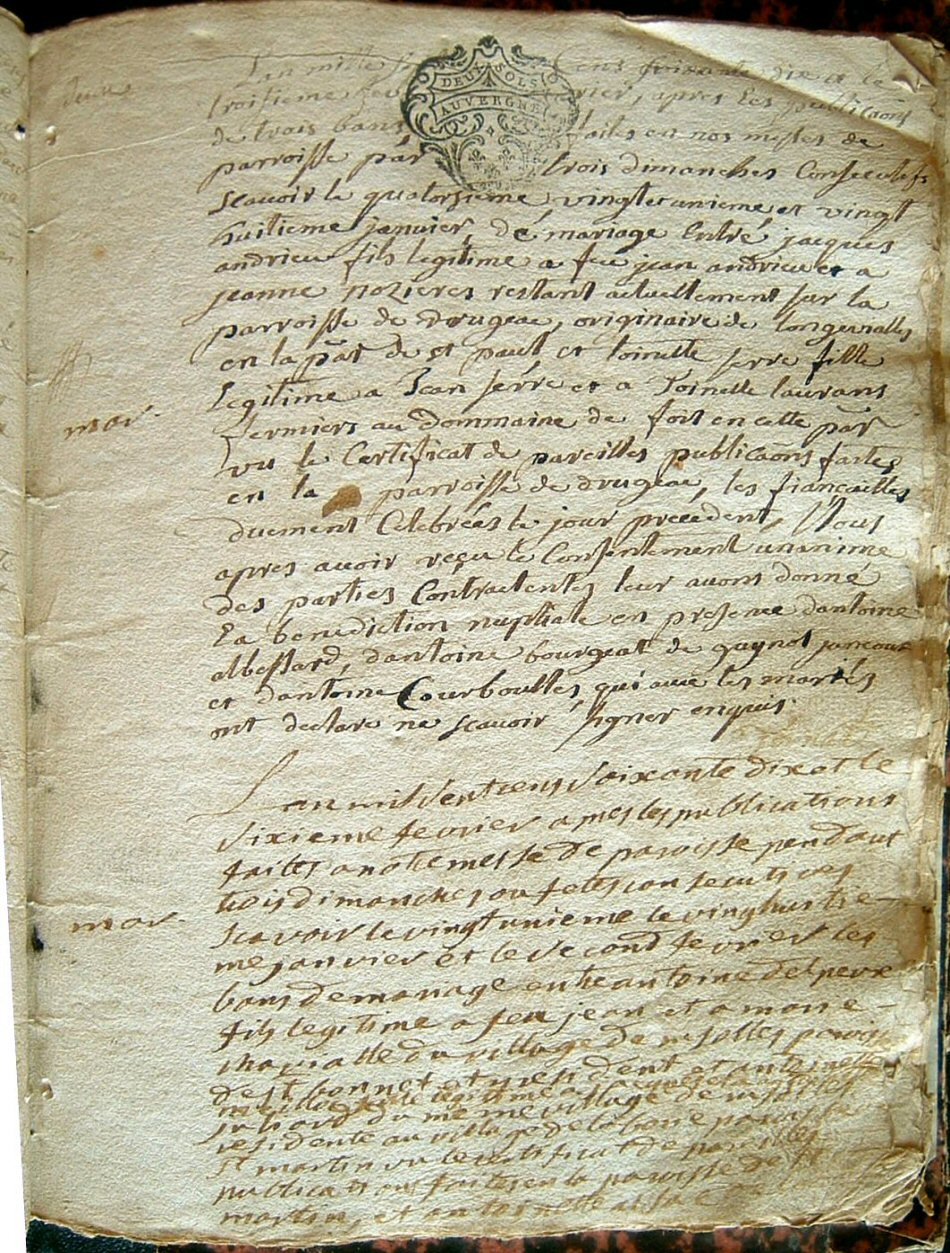 DEUX SOLS
AUVERGNE
L'an mille cens soixante dix
troisieme fevrier, apres les publicaons
de trois bans faites en nos messes de
parroisse par trois dimanches Consecutifs
scavoir le quatorsieme vingtecunieme et vingt
huitieme janvier, de mariage Entre jacques
andrieu fils legitime a feu jean andrieu et a
jeanne nozieres restant actuellement sur la
parroisse de drugeac, originaire de longevialles
en la par de st paul et toinette serre fille
legitime a Jean serre et a Toinette laurans
fermiers au dommaine de fost en cette par
vu le Certificat de pareilles publicaons faites
en la parroisse de drugeac, les fiançailles
duement Celebrées le jour precedent, Nous
apres avoir reçu le Consentement unanime
des parties Contractentes leur avons donné
La benediction nuptiale en presence dantoine
albessard, dantoine bourgeat de
et dantoine Courboulles qui avec les mariés
ont declare ne scavoir signer enquis.
mar.
L'an mil sept cens soixante dix et le
sixieme fevrier apres les publications
faites a notre messe de paroisse pendant
trois dimanches ou fetes consecutives
scavoir le vingt unieme le vingt huitie
me janvier et le second fevrier les
bans de mariage entre antoine delpeux
fils legitime a feu jean et a marie
du village de paroisse
de st bonnet et y resident et antoinette
fille legitime a
du meme village de
residente au village de la paroisse
st martin vu le certificat de pareilles
publications faites en la paroisse de st
martin, et
mar.